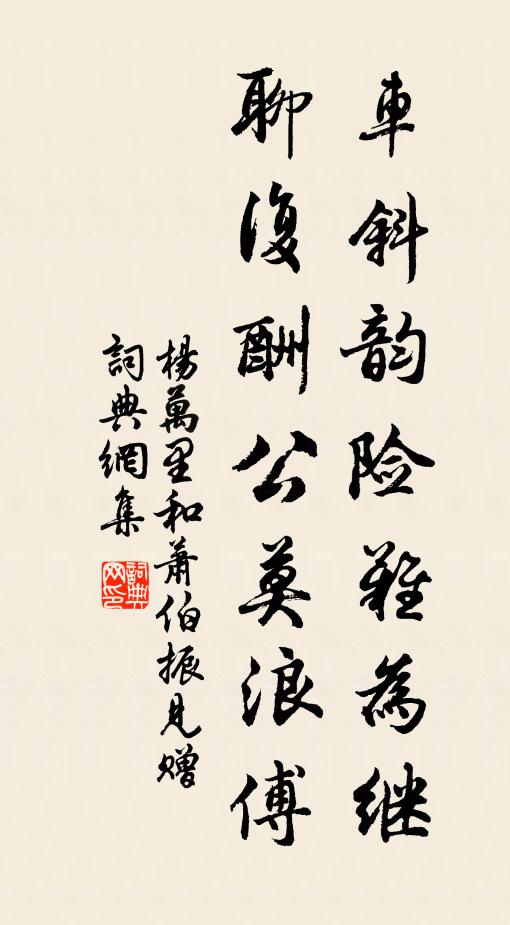 車斜韵险難為继
聊復酬公莫浪傅
楊萬里和蕭伯振見赠
詞典網集
詞典网印